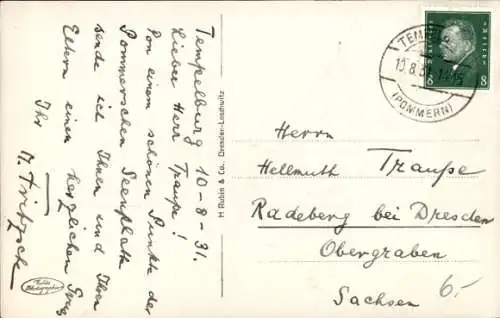 Tempelburg 10-8-31.
Lieber Herr Traupe!
Von einem schönen Punkte der
Pommerschen Seenplatte
sende ich Ihnen und Ihren
Eltern einen herzlichen Gruß
Ihr
M. Fritzsch
H Rubin & Co., Dresden-Loschwitz
TEMPELBURG
10.8.31
(POMMERN)
8 8
Herrn
Hellmuth Traupe
Radeberg bei Dresden
Obergraben
Sachsen
6,-